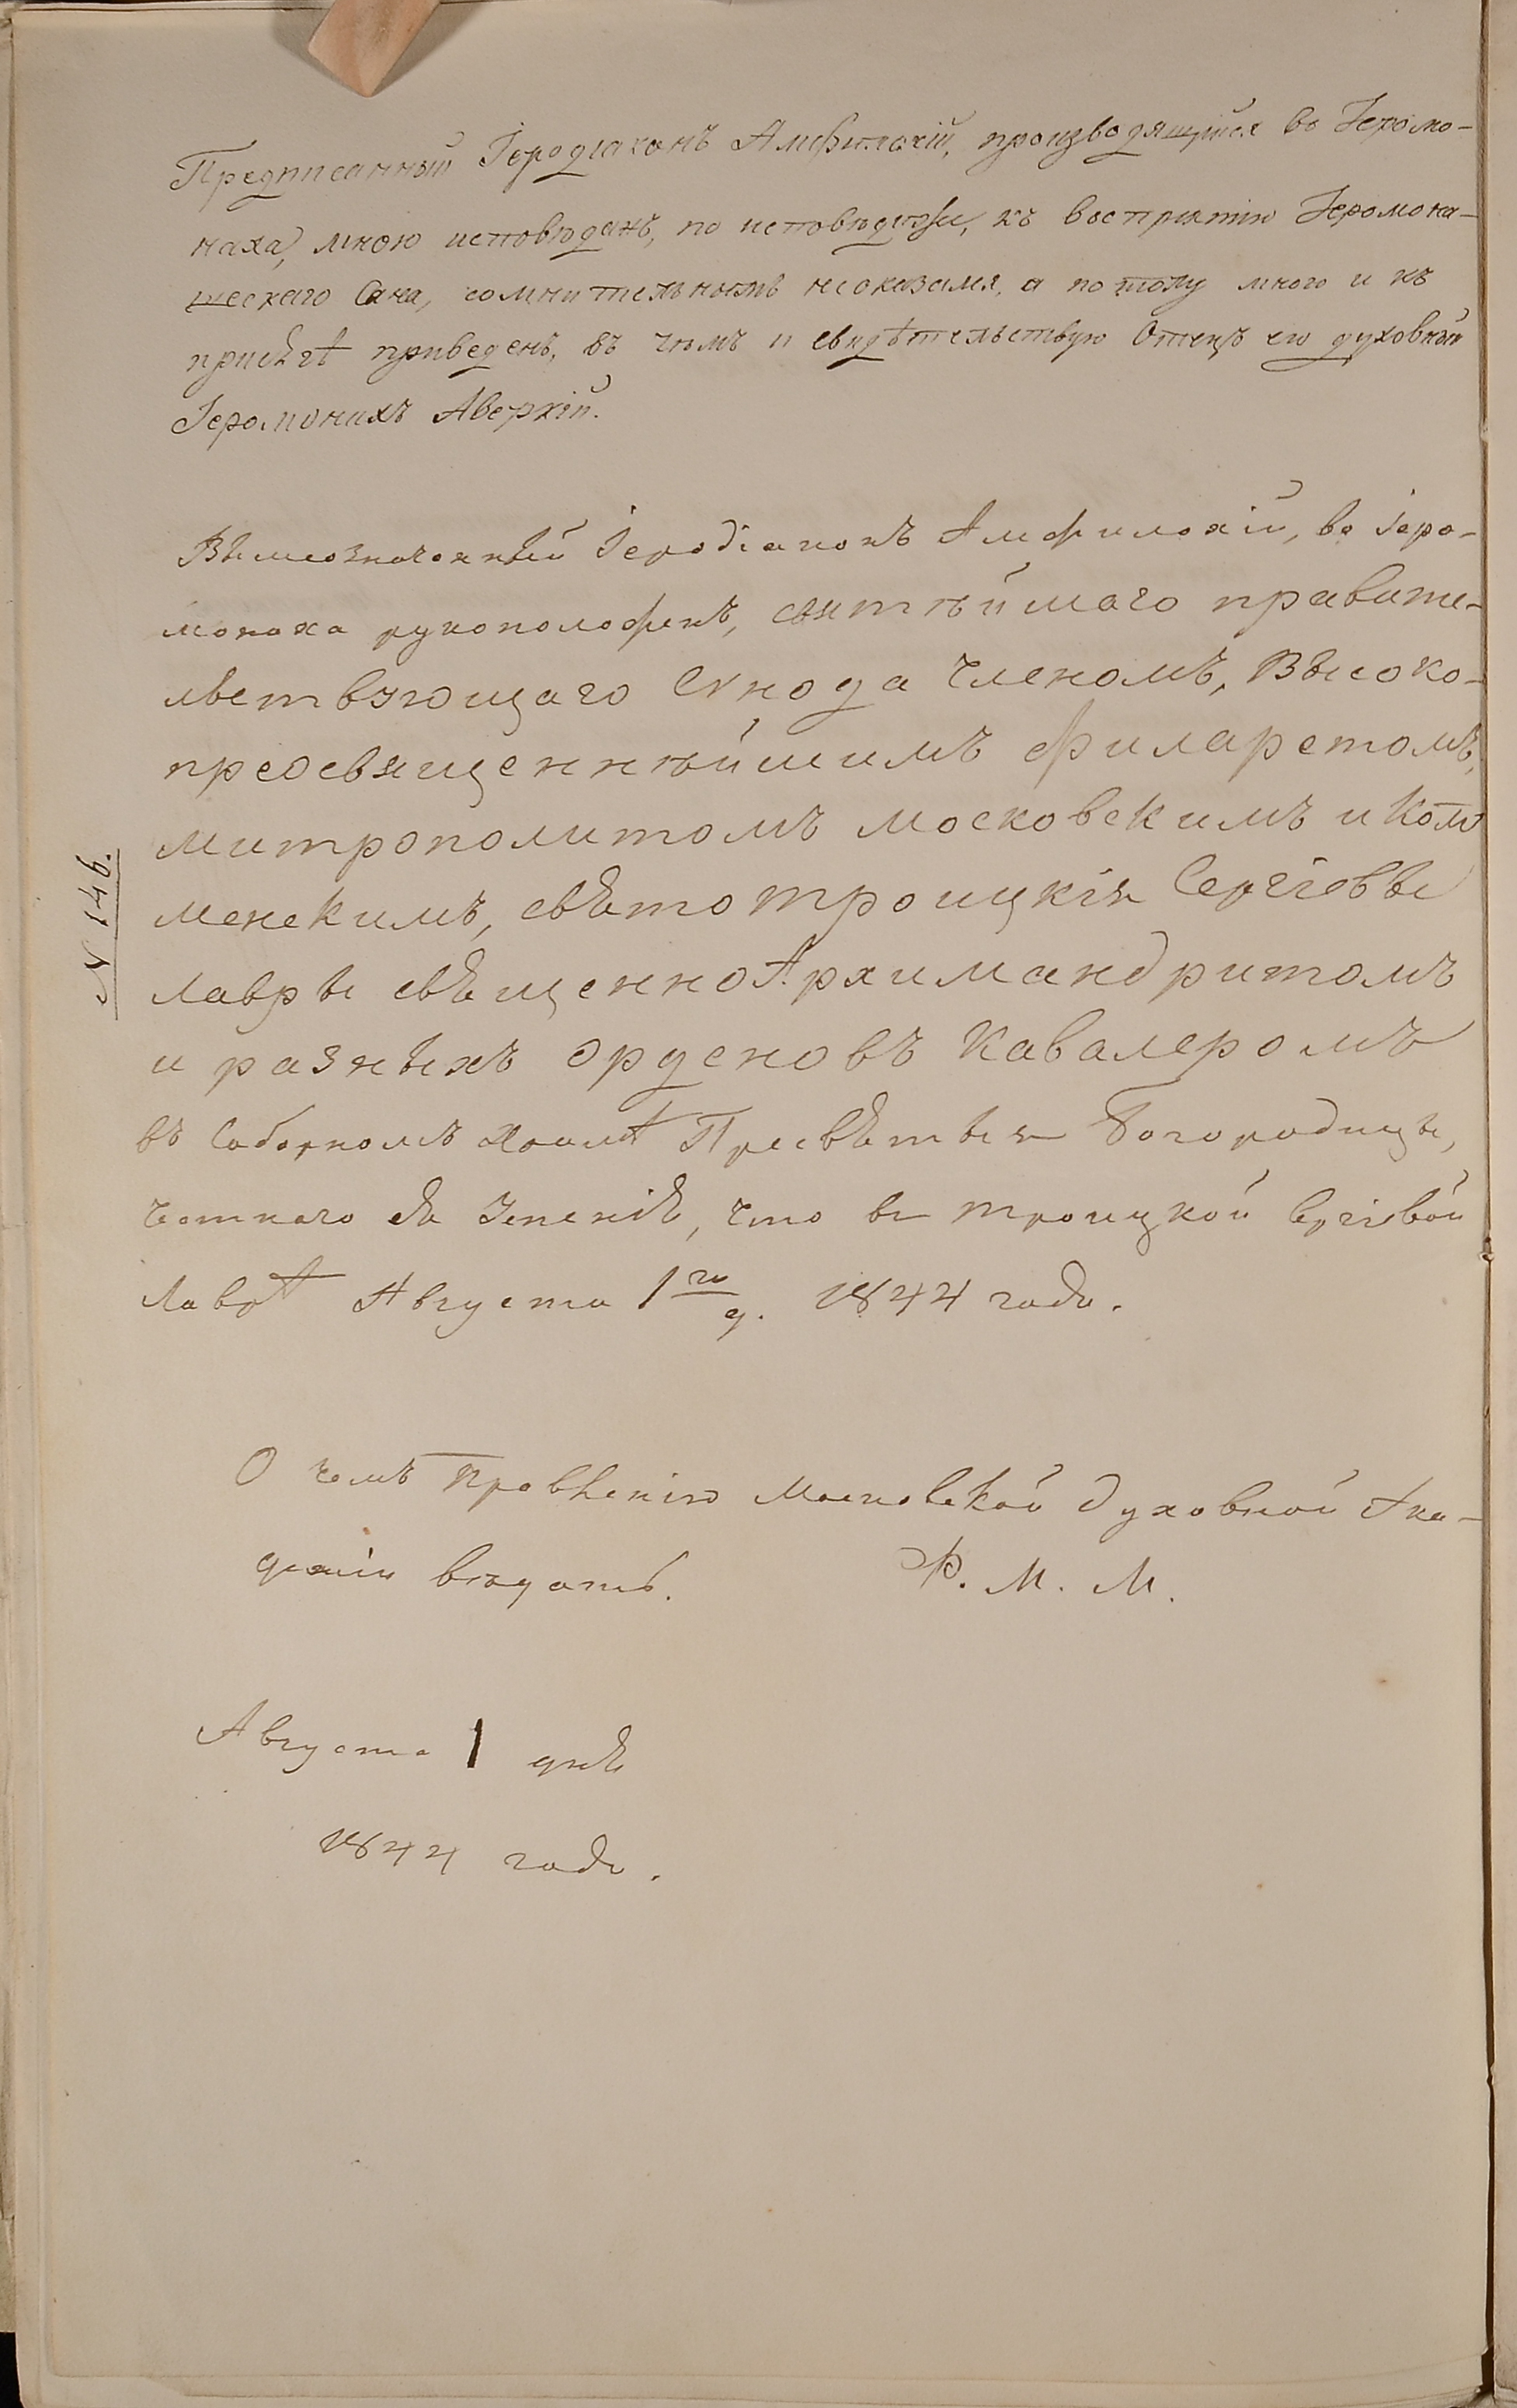 Предписанный Іеродіаконъ Амфилохій, производящійся во Іеромо-
наха, мною исповѣданъ, по исповѣди же, къ воспріятію Іеромона-
шескаго Сана, сомнительнымъ неоказался, а потому мною и къ
присягѣ приведенъ, въ чемъ и свидѣтельствую Отецъ его духовный
Іеромонахъ Аверкій.
Вышеозначенный Іеродіаконъ Амфилохій, во Іеро-
монаха рукоположенъ, святѣйшаго правите-
льствующаго Сѵнода Членомъ, Высоко-
преосвященнѣйшимъ Филаретомъ,
митрополитомъ московскимъ и Коло
менскимъ, святотроицкія Сергіевы
Лавры священноАрхимандритомъ
и разныхъ орденовъ Кавалеромъ
въ Соборномъ Храмѣ Пресвятыя Богородицы,
честнаго ея Успенія, что въ троицкой Сергіевой
Лаврѣ Августа 1го д. 1844 года.
N 146.
О чемъ Правленію Московской Духовной Ака-
деміи вѣдать. Ф. М. М.
Августа 1 дня
1844 года.